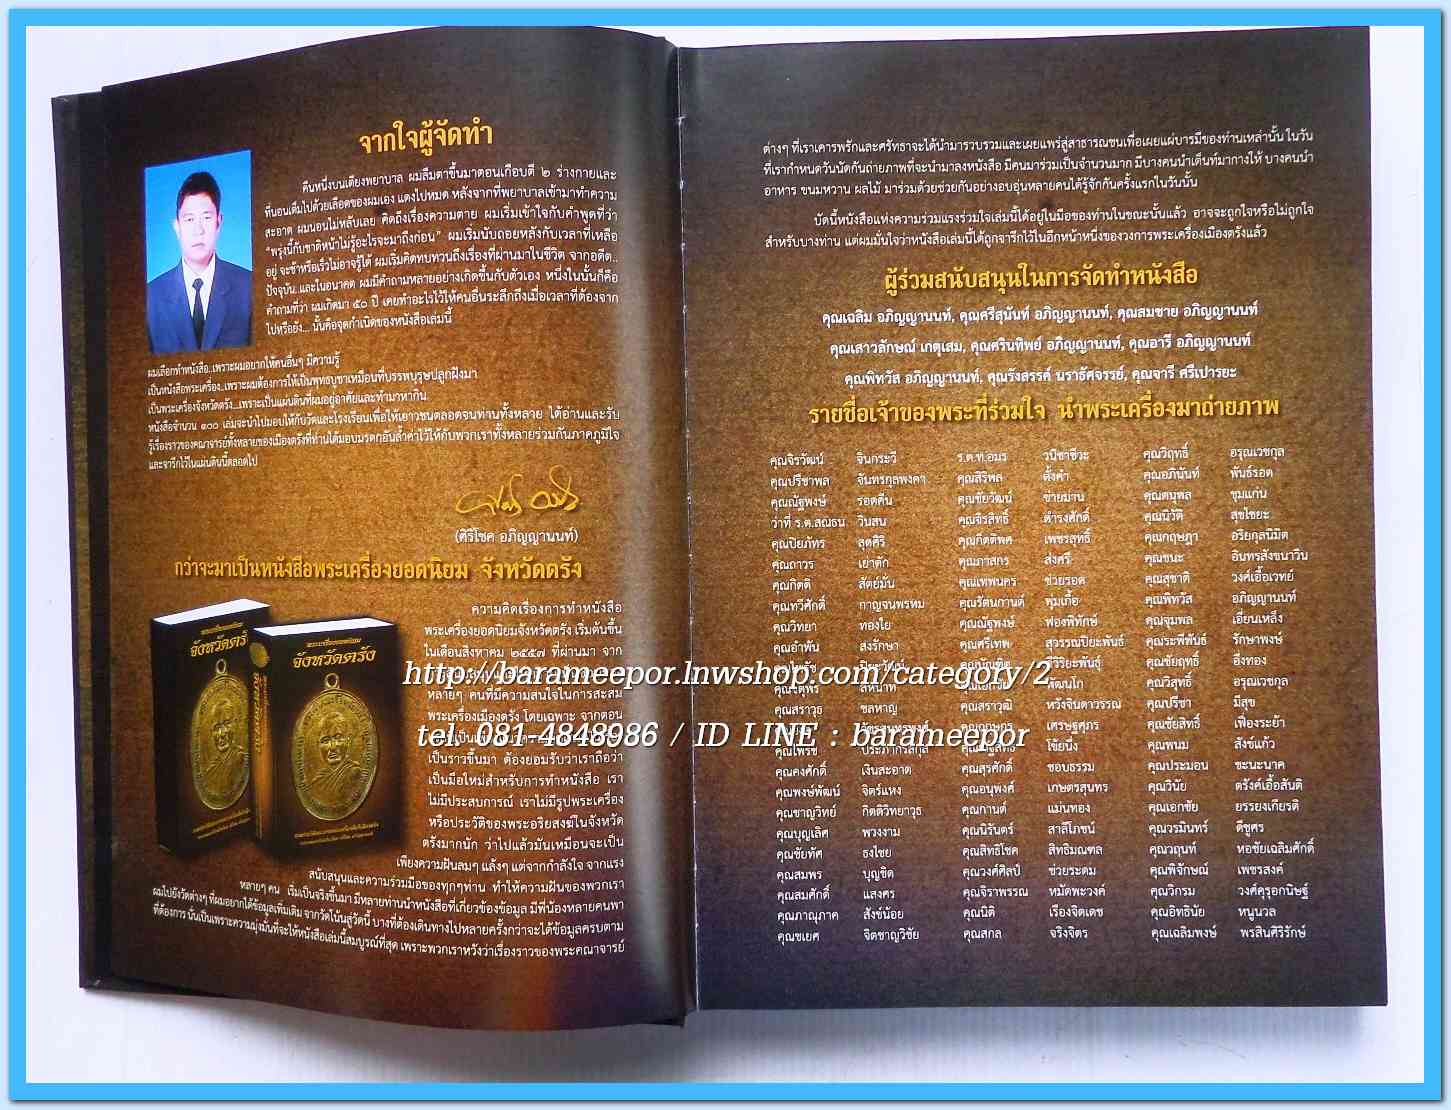 จากใจผู้จัดทำ
คืนหนึ่งบนเตียงพยาบาล ผมลืมตาขึ้นมาตอนเกือบตี ๒ ร่างกายและ
ที่นอนเต็มไปด้วยเลือดของผมเอง แดงไปหมด หลังจากที่พยาบาลเข้ามาทำความ
สะอาด ผมนอนไม่หลับเลย คิดถึงเรื่องความตาย ผมเริ่มเข้าใจกับคำพูดที่ว่า
"พรุ่งนี้กับชาติหน้าไม่รู้อะไรจะมาถึงก่อน" ผมเริ่มนับถอยหลังกับเวลาที่เหลือ
อยู่ จะช้าหรือเร็วไม่อาจรู้ได้ ผมเริ่มคิดทบทวนถึงเรื่องที่ผ่านมาในชีวิต จากอดีต..
ปัจจุบัน..และในอนาคต ผมมีคำถามหลายอย่างเกิดขึ้นกับตัวเอง หนึ่งในนั้นก็คือ
คำถามที่ว่า ผมเกิดมา ๕๐ ปี เคยทำอะไรไว้ให้คนอื่นระลึกถึงเมื่อเวลาที่ต้องจาก
ไปหรือยัง... นั้นคือจุดกำเนิดของหนังสือเล่มนี้
ผมเลือกทำหนังสือ..เพราะผมอยากให้คนอื่นๆ มีความรู้
เป็นหนังสือพระเครื่อง..เพราะผมต้องการให้เป็นพุทธบูชาเหมือนที่บรรพบุรุษปลูกฝังมา
เป็นพระเครื่องจังหวัดตรัง...เพราะเป็นแผ่นดินที่ผมอยู่อาศัยและทำมาหากิน
หนังสือจำนวน ๑๐๐ เล่มจะนำไปมอบให้กับวัดและโรงเรียนเพื่อให้เยาวชนตลอดจนท่านทั้งหลาย ได้อ่านและรับ
รู้เรื่องราวของคณาจารย์ทั้งหลายของเมืองตรังที่ท่านได้มอบมรดกอันล้ำค่าไว้ให้กับพวกเราทั้งหลายร่วมกันภาคภูมิใจ
และจารึกไว้ในแผ่นดินนี้ตลอดไป
(ศิริโชค อภิญญานนท์)
กว่าจะมาเป็นหนังสือพระเครื่องยอดนิยม จังหวัดตรัง
จังหวัดตรัง
จังหวัดตรัง
ความคิดเรื่องการทำหนังสือ
พระเครื่องยอดนิยมจังหวัดตรัง เริ่มต้นขึ้น
ในเดือนสิงหาคม ๒๕๕๗ ที่ผ่านมา จาก
หลายๆ คนที่มีความสนใจในการสะสม
พระเครื่องเมืองตรัง โดยเฉพาะ จากตอน
เป็นราวขึ้นมา ต้องยอมรับว่าเราถือว่า
เป็นมือใหม่สำหรับการทำหนังสือ เรา
ไม่มีประสบการณ์ เราไม่มีรูปพระเครื่อง
หรือประวัติของพระอริยสงฆ์ในจังหวัด
ตรังมากนัก ว่าไปแล้วมันเหมือนจะเป็น
เพียงความฝันลมๆ แล้งๆ แต่จากกำลังใจ จากแรง
สนับสนุนและความร่วมมือของทุกๆท่าน ทำให้ความฝันของพวกเรา
หลายๆ คน เริ่มเป็นจริงขึ้นมา มีหลายท่านนำหนังสือที่เกี่ยวข้องข้อมูล มีพี่น้องหลายคนพา
ผมไปยังวัดต่างๆ ที่ผมอยากได้ข้อมูลเพิ่มเติม จากวัดโน้นสู่วัดนี้ บางที่ต้องเดินทางไปหลายครั้งกว่าจะได้ข้อมูลครบตาม
ที่ต้องการ นั่นเป็นเพราะความมุ่งมั่นที่จะให้หนังสือเล่มนี้สมบูรณ์ที่สุด เพราะพวกเราหวังว่าเรื่องราวของพระคณาจารย์
ต่างๆ ที่เราเคารพรักและศรัทธาจะได้นำมารวบรวมและเผยแพร่สู่สาธารณชนเพื่อเผยแผ่บารมีของท่านเหล่านั้น ในวัน
ที่เรากำหนดวันนัดกันถ่ายภาพที่จะนำมาลงหนังสือ มีคนมาร่วมเป็นจำนวนมาก มีบางคนนำเต็นท์มากางให้ บางคนนำ
อาหาร ขนมหวาน ผลไม้ มาร่วมด้วยช่วยกันอย่างอบอุ่นหลายคนได้รู้จักกันครั้งแรกในวันนั้น
บัดนี้หนังสือแห่งความร่วมแรงร่วมใจเล่มนี้ได้อยู่ในมือของท่านในขณะนั้นแล้ว อาจจะถูกใจหรือไม่ถูกใจ
สำหรับบางท่าน แต่ผมมั่นใจว่าหนังสือเล่มนี้ได้ถูกจารึกไว้ในอีกหน้าหนึ่งของวงการพระเครื่องเมืองตรังแล้ว
ผู้ร่วมสนับสนุนในการจัดทำหนังสือ
คุณเฉลิม อภิญญานนท์, คุณศรีสุนันท์ อภิญญานนท์, คุณสมชาย อภิญญานนท์
คุณเสาวลักษณ์ เกตุเสม, คุณศรินทิพย์ อภิญญานนท์, คุณอารี อภิญญานนท์
คุณพิทวัส อภิญญานนท์, คุณรังสรรค์ นราธัศจรรย์, คุณจารี ศรีเปารยะ
รายชื่อเจ้าของพระที่ร่วมใจ นำพระเครื่องมาถ่ายภาพ
คุณจิรวัฒน์ จินกระวี ร.ต.ท.อมร วนิชาชีวะ คุณวิฤทธิ์ อรุณเวชกุล
คุณปรีชาพล จันทรกุลพงศา คุณสิริพล ตั้งคำ คุณอภินันท์ พันธ์รอด
คุณณัฐพงษ์ รอดคืน คุณชัยวัฒน์ ข่ายม่าน คุณตนุพล ชุมแก่น
ว่าที่ ร.ต.สณธน วินสน คุณจิรสิทธิ์ ดำรงศักดิ์ คุณนิวัติ สุขไชยะ
คุณปิยภัทร สุดคิริ คุณกิตติพศ เพชรสุทธิ์ คุณกฤษฎา อริยกุลนิมิต
คุณถาวร เย่าตัก คุณภาสกร ส่งศรี คุณชนะ อินทรสังขนาวิน
คุณกิตติ สัตย์มั่น คุณเทพนคร ช่วยรอด คุณสุชาติ วงศ์เอื้อเวทย์
คุณทวีศักดิ์ กาญจนพรหม คุณรัตนกานต์ พุ่มเกื้อ คุณพิทวัส อภิญญานนท์
คุณวิทยา ทองใย คุณณัฐพงษ์ ฟองพิทักษ์ คุณจุมพล เอี่ยนเหล็ง
คุณอำพัน ส่งรักษา คุณศรีเทพ สุวรรณปิยะพันธ์ คุณระพีพันธ์ รักษาพงษ์
คุณชัยฤทธิ์ อึ่งทอง
คุณวิสุทธิ์ อรุณเวชกุล
คุณสราวุธ ชลหาญ คุณสุราวุฒิ หวังจินดาวรรณ์ คุณปรีชา มีสุข
เศรษฐศุภร คุณชัยสิทธิ์ เฟื่องระย้า
โชัยนึ่ง คุณพนม สังข์แก้ว
คุณคงศักดิ์ เงินสะอาด คุณสุรศักดิ์ ชอบธรรม คุณประมอน ชะนะนาค
คุณพงษ์พัฒน์ จิตร์แหง คุณอนุพงศ์ เกษตรสุนทร คุณวินัย ตรังค์เอื้อสันติ
คุณชาญวิทย์ กิตติวิทยาวุธ คุณกานต์ แม่นทอง คุณเอกชัย ยรรยงเกียรติ
คุณบุญเลิศ พวงงาม คุณนิรันดร์ สาลีโภชน์ คุณวรมินทร์ ดีชูศร
คุณชัยทัศ ธงไชย คุณสิทธิโชค สิทธิมณฑล คุณวฤนท์ หอชัยเฉลิมศักดิ์
คุณสมพร บุญชิต คุณวงศ์ศิลป์ ช่วยระดม คุณพิจักษณ์ เพชรสงค์
คุณสมศักดิ์ แสงศร คุณจิราพรรณ หมัดพะวงค์ คุณวิกรม วงศ์คุรุอกนิษฐ์
คุณภาณุภาค สังข์น้อย คุณนิติ เรืองจิตเดช คุณอิทธินัย หนูนวล
คุณชเยศ จิตชาญวิชัย คุณสกล จริงจิตร คุณเฉลิมพงษ์ พรสินศิริรักษ์
http://barameepor.lnwshop.com/category/2
tel. 081-4848986 / ID LINE : barameepor